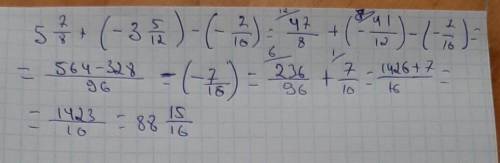 5 7/8 + (-3 5/12) - (-2/10) = 47/8 + (-41/12) - (-2/10) =
= 564-328/96 - (-7/16) = 236/96 + 7/10 = 1426+7/16 =
= 1423/10 = 88 15/16